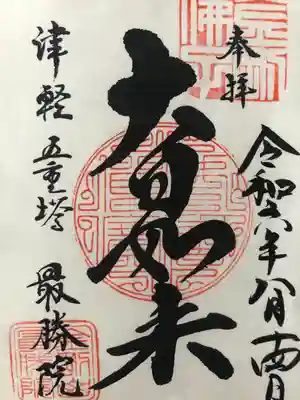 奉拝
令和六年八月十四日
大日如来
津軽 五重塔 最勝院